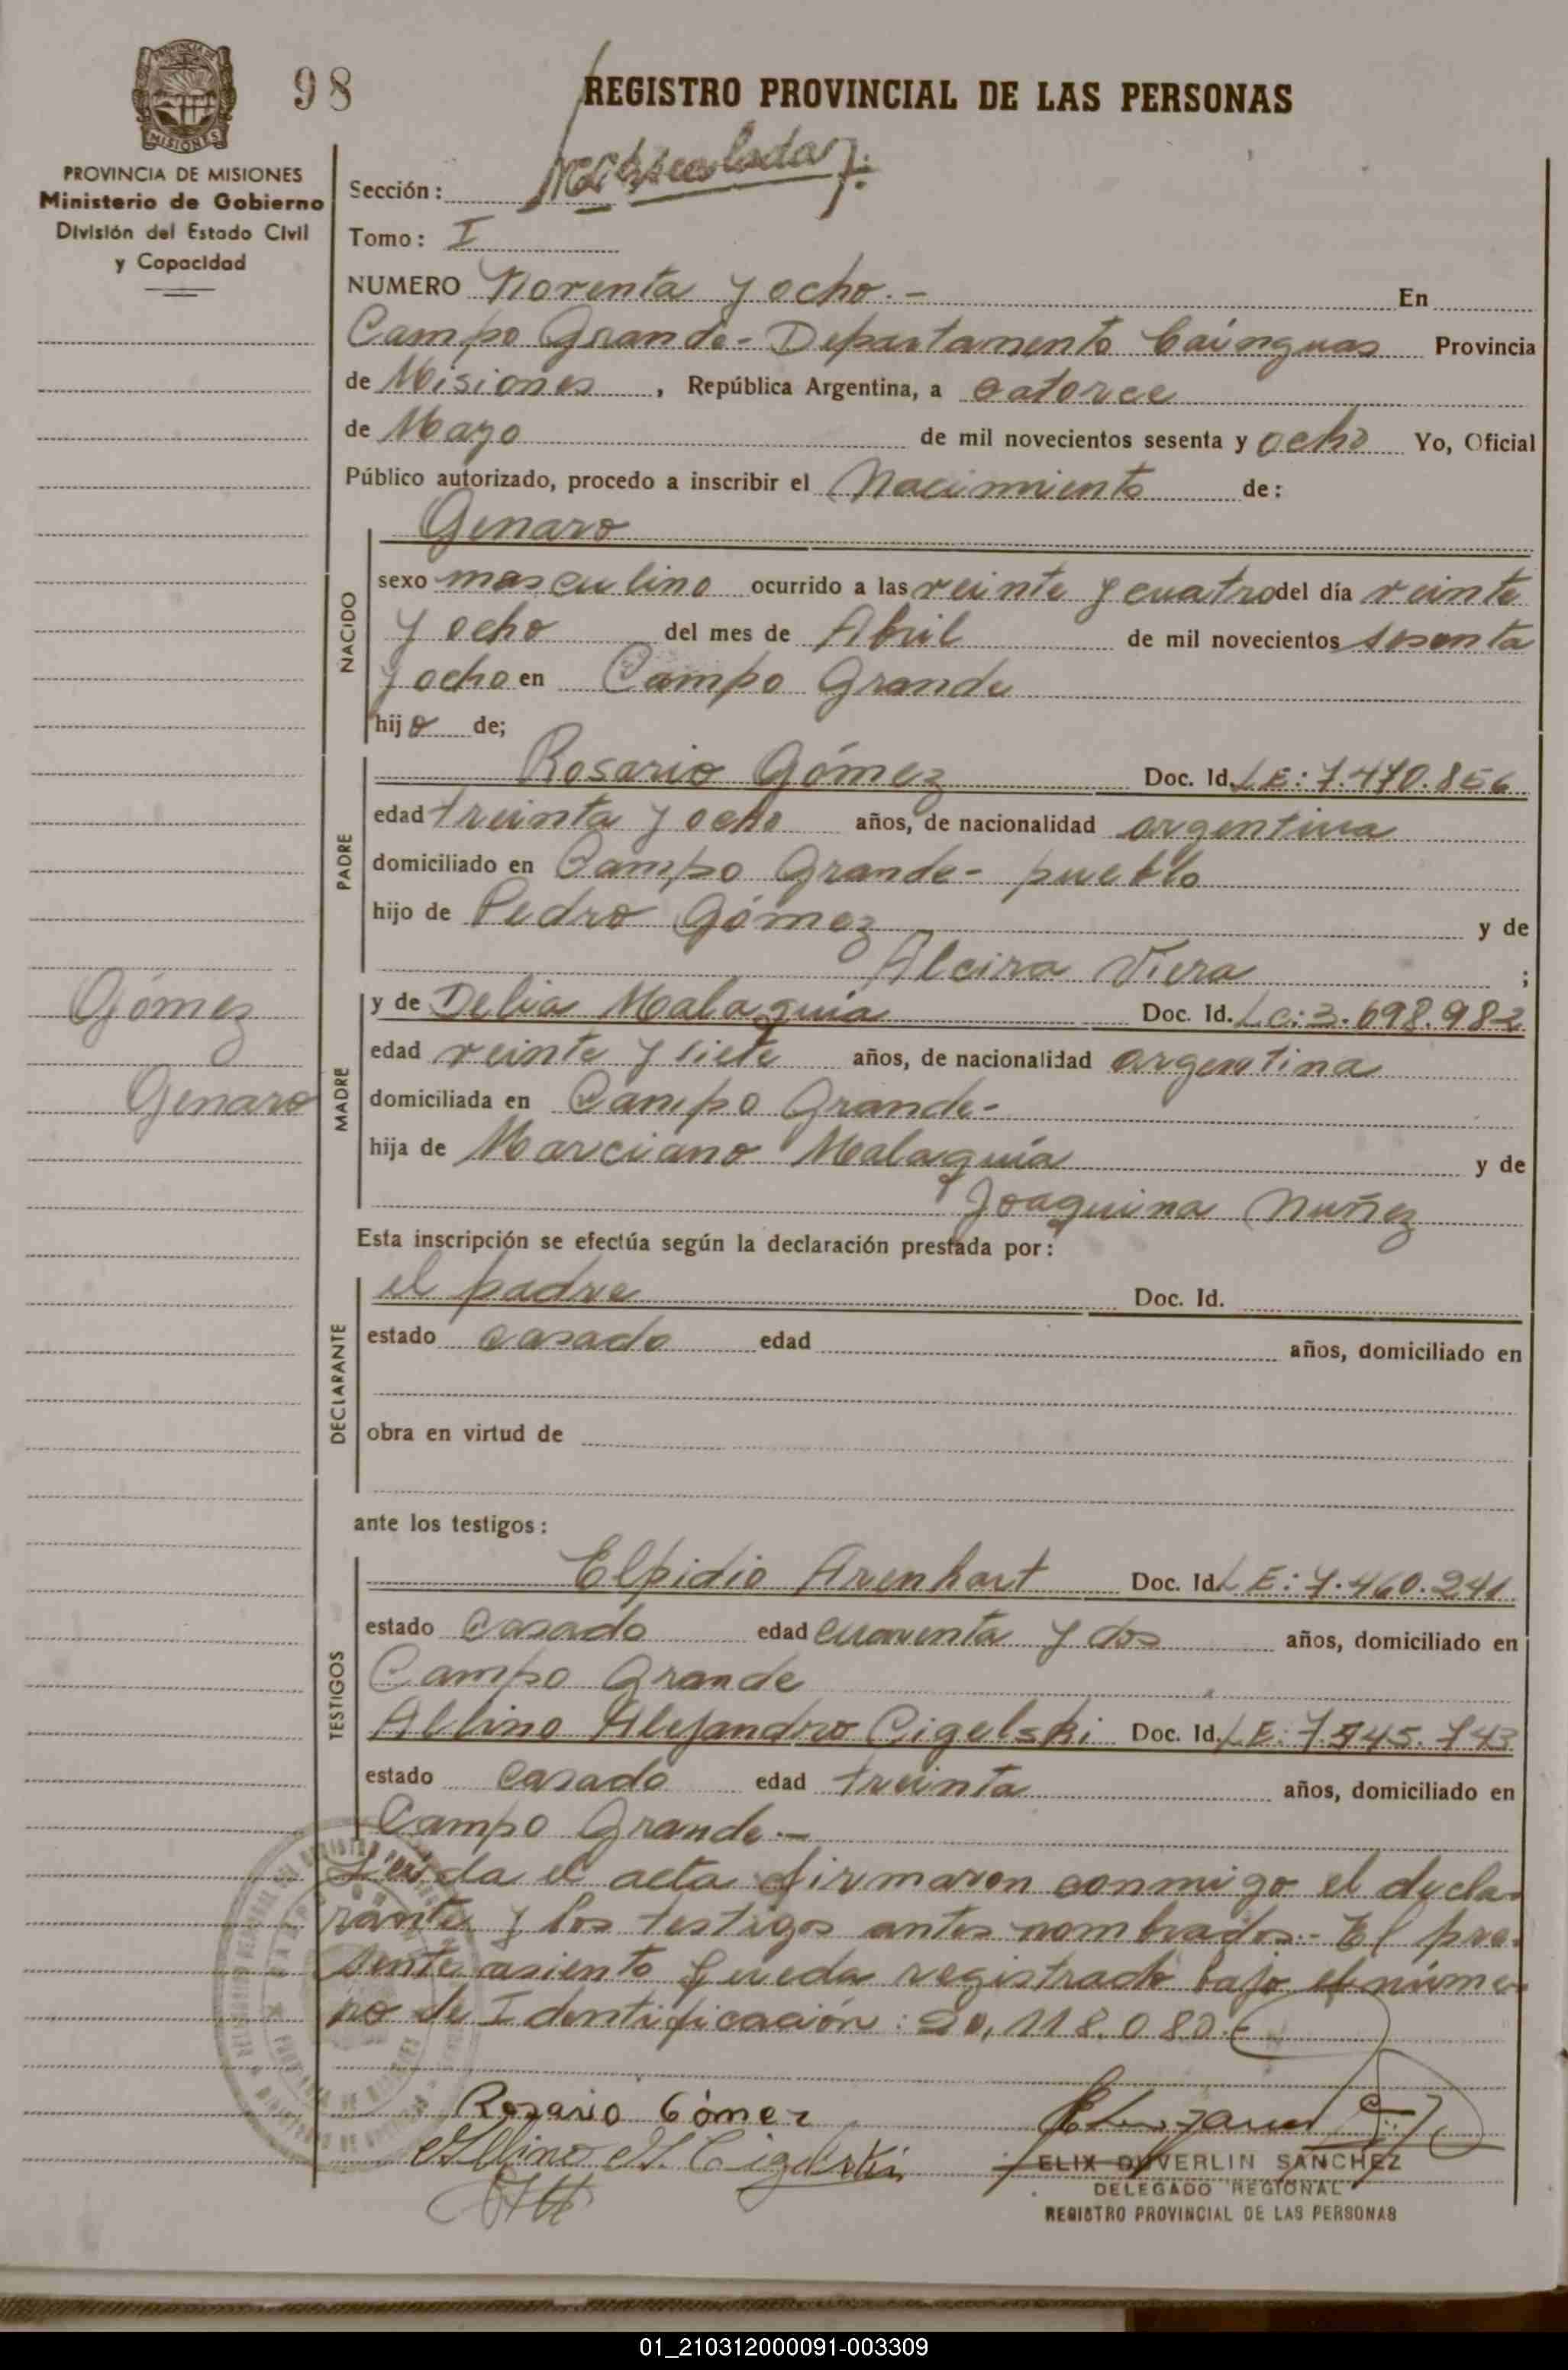 98
REGISTRO PROVINCIAL DE LAS PERSONAS
PROVINCIA DE MISIONES
Ministerio de Gobierno
División del Estado Civil
y Capacidad
Sección:
Tomo: I
NUMERO Noventa y ocho.- En
Campo Grande- Departamento Cainguas Provincia
de Misiones, República Argentina, a catorce
de Mayo de mil novecientos sesenta y ocho Yo, Oficial
Público autorizado, procedo a inscribir el Nacimiento de:
NACIDO
Genaro
sexo masculino ocurrido a las veinte y cuatro del día veinte
y ocho del mes de Abril de mil novecientos sesenta
y ocho en Campo Grande
hijo de;
PADRE
Rosario Gómez Doc. Id. LE: 7.470.856
edad treinta y ocho años, de nacionalidad argentina
domiciliado en Campo Grande- pueblo
hijo de Pedro Gómez y de
Alcira Viera ;
Gómez
Genaro
MADRE
y de Delia Malaquia Doc. Id. Lc: 3.698.982
edad veinte y siete años, de nacionalidad argentina
domiciliada en Campo Grande-
hija de Marciano Malaquía y de
Joaquina Nuñez
Esta inscripción se efectúa según la declaración prestada por:
DECLARANTE
el padre Doc. Id.
estado casado edad años, domiciliado en
obra en virtud de
ante los testigos:
TESTIGOS
Elpidio Arenhart Doc. Id. LE: 7.460.241
estado casado edad cuarenta y dos años, domiciliado en
Campo Grande
Albino Alejandro Cigelski Doc. Id. LE: 7.545.743
estado casado edad treinta años, domiciliado en
Campo Grande.-
Leida el acta firmaron conmigo el decla-
rante y los testigos antes nombrados.- El pre-
sente asiento queda registrado bajo el núme-
ro de Identificación: 20,118.080.-
Rosario Gómez
Albino A. Cigelski
FELIX DUVERLIN SANCHEZ
DELEGADO REGIONAL
REGISTRO PROVINCIAL DE LAS PERSONAS
01_210312000091-003309